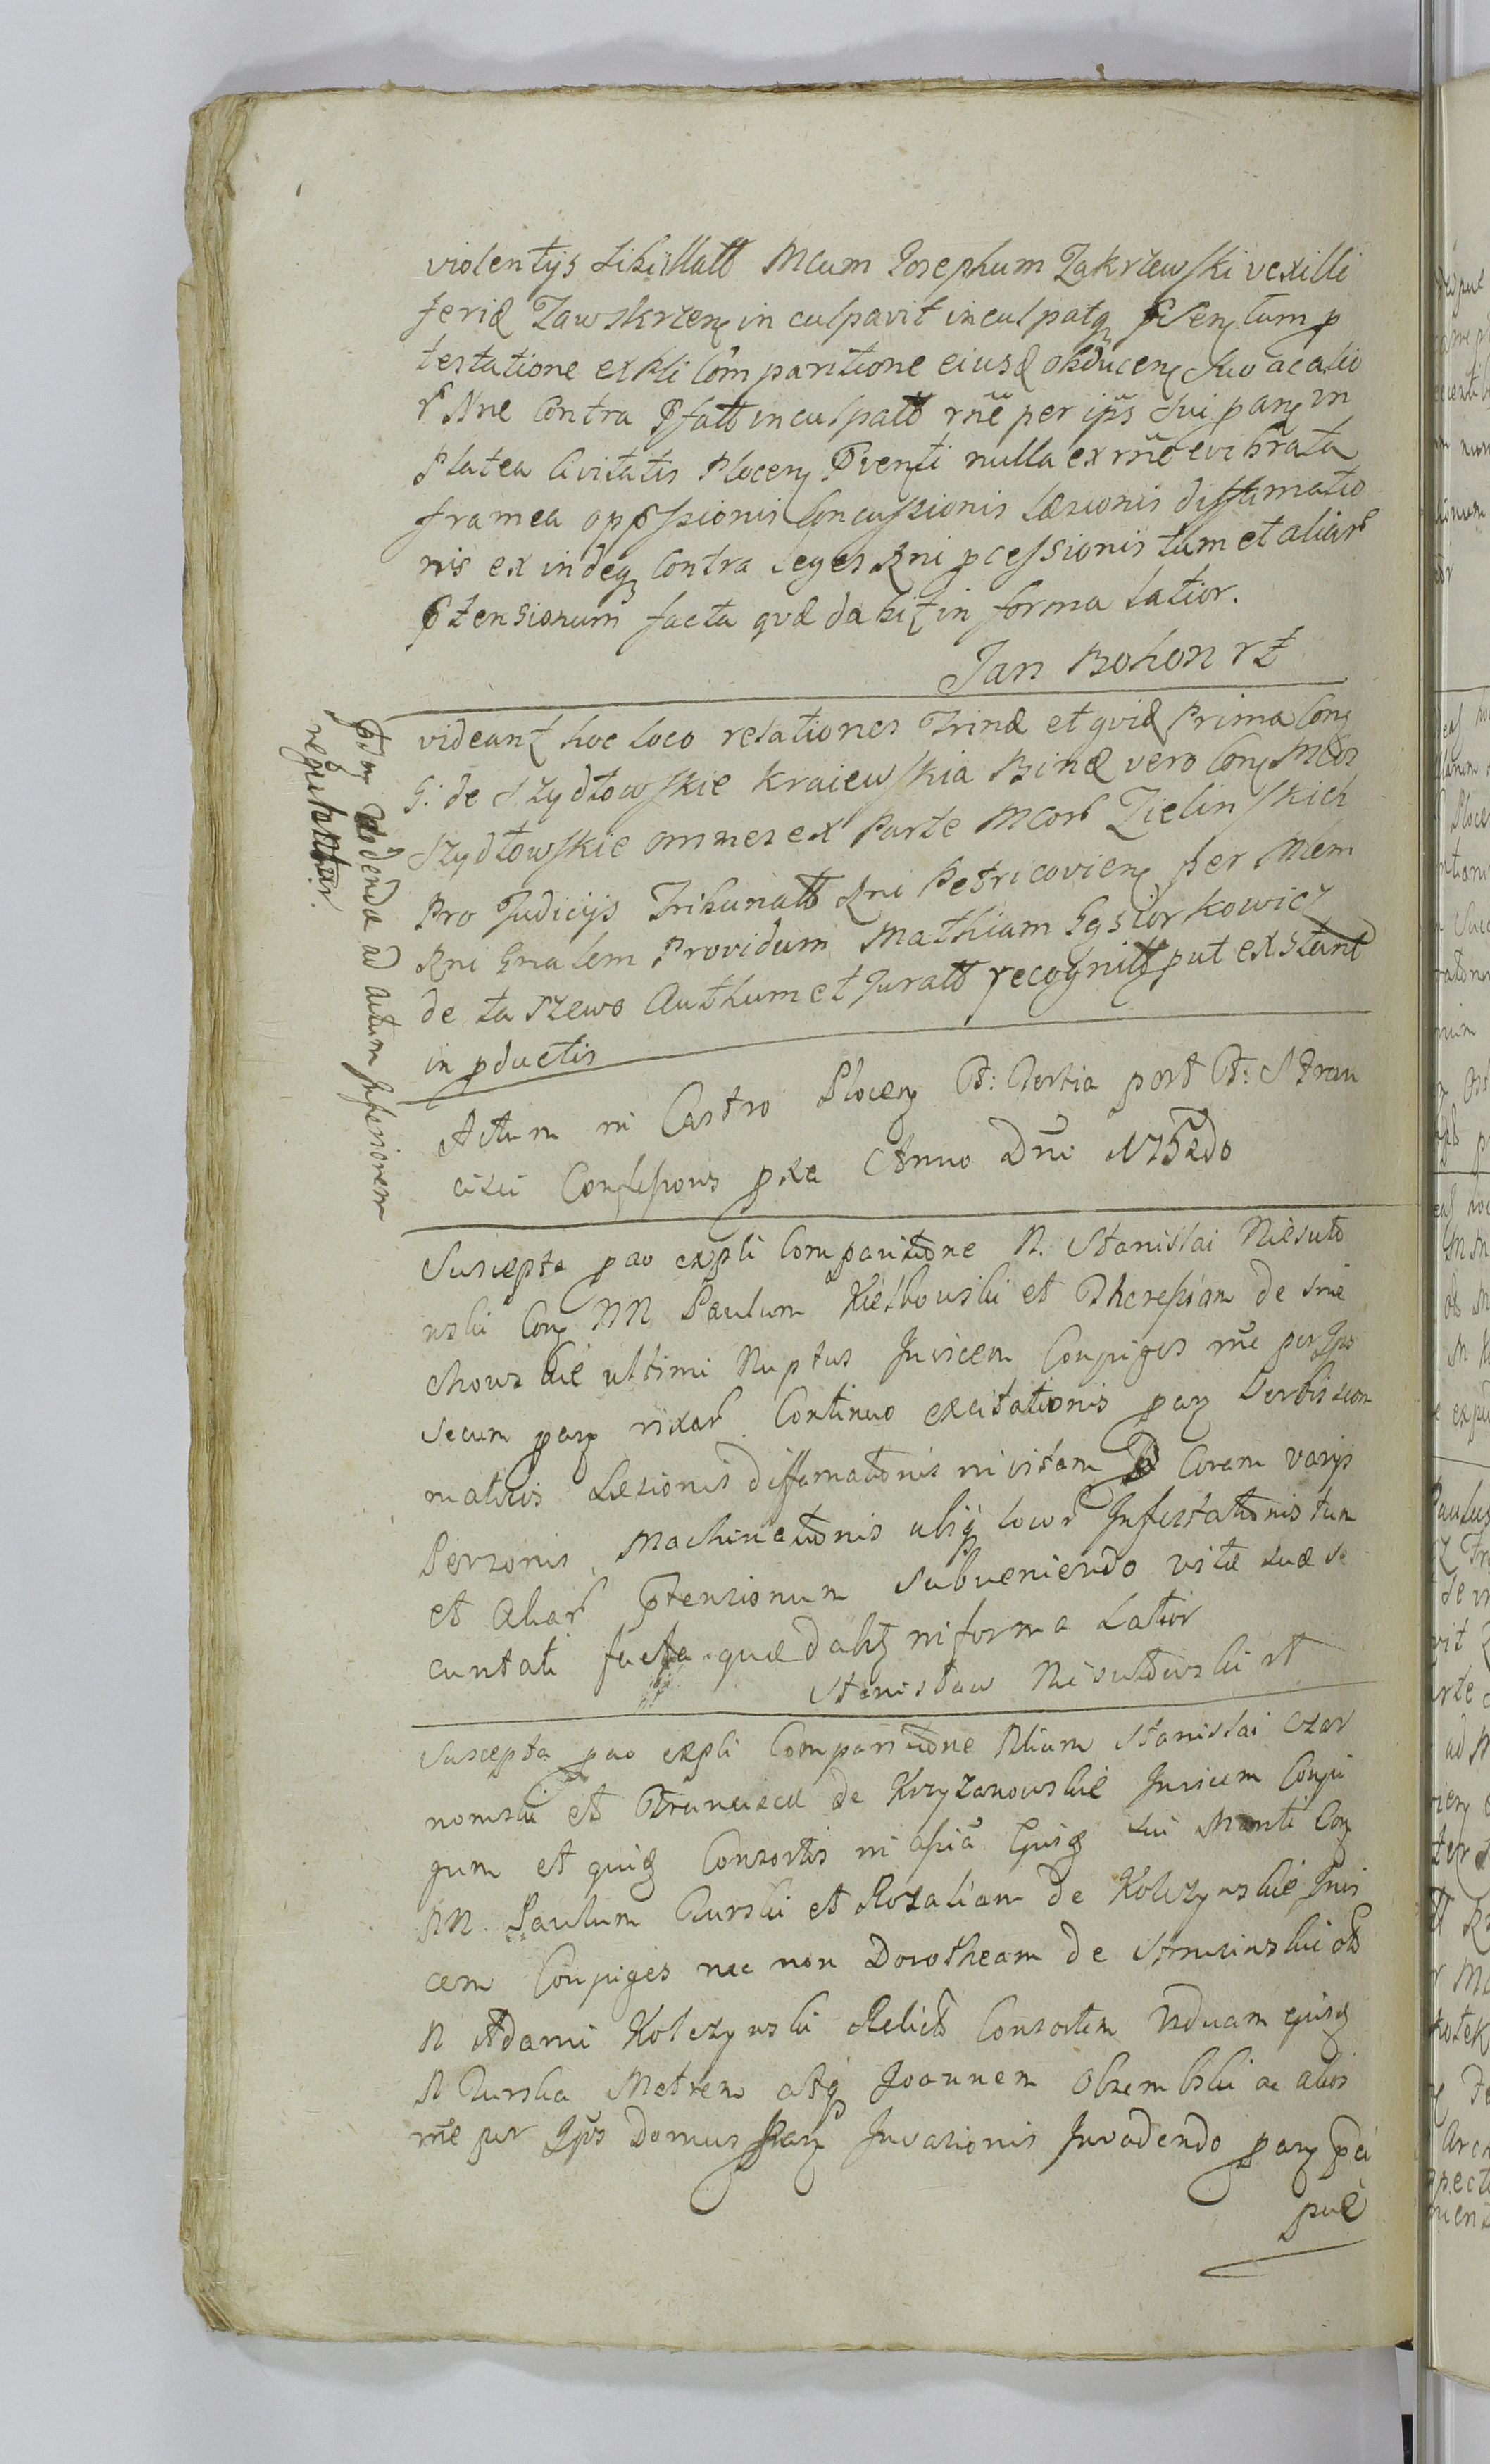 violentijs sibi illatt Mcum Josephum Zakrzewski vexilli
feridȩ Zawskrzen in culpavit inculpatq pssen tum p
testatione ex pli Comparitione eiusd obducen suo ac alio
r Nne Contra Pfatt inculpatt rne per ips sui par in
Platea Civitatis Plocen Pventi nulla ex rne evibrata
framea oppssionis Concussionis læsionis diffamatio
nis ex indeq Contra leges Rni pcessionis tum et aliar
Ptensionum facta quæ dabit in forma latior.
Jan Bohon rt
videant hoc loco relationes Trinæ et quid Prima Con
G: de Szydłowskie Kraiewska Binæ vero Con Mcos
Szydłowskie omnes ex Parte Mcor Zielinskich
Pro Judicijs Tribunatt Rni Petricovien per Mem
Rni Gnalem Providum Mathiam Gąsiorkowicz
de Łaszewo Authum et Juratt recognitt put extant
in pductis
Actum in Castro Plocen F: Tertia post F: S Fran
cisci Confessoris pxa Anno Dni 1752do
Suscepta pao expli Comparitione N. Stanislai Niesuło
wski Con NN Paulum Kiełbowski et Theressiam de
chowskie ultimi Nuptus Invicem Conjuges rne per Ips
secum par rixar Continuo excitationis par Verbis
Læsionis diffamationis in vitam Coram varijs
Personis Machinationis ubiq locor Infestationis tum
et Aliar Ptensionum Subveniendo vitæ suæ se
curitati facta quæ dabit in forma Latior
Stanisław Niesułowski rt
Suscepta pao expli Comparitione Nlium Stanislai Czar
nomski et Franciscæ de Krzyzanowskie Invicem Conju
gum et quid Consortis in assia Ejusd sui Mariti Con
NN. Paulum Turski et Rozaliam de Kolczynskie Invi
cem Conjuges nec non Dorotheam de ols
N Adami Kolczynski Relict Consortem Viduam ejusq
N Turska Matrem atq Joannem Obrembski ac alios
rne per Ips Domus par Invasionis Invadendo par pci
pue
Videnda ad actum Inferiorem